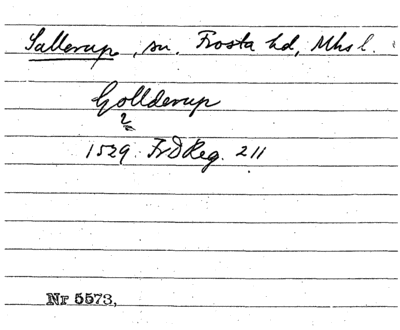 Sallerup, sn. Frosta hd, Mhs l.
Gollderup
1529 FrdReg. 211
Nr 5573,